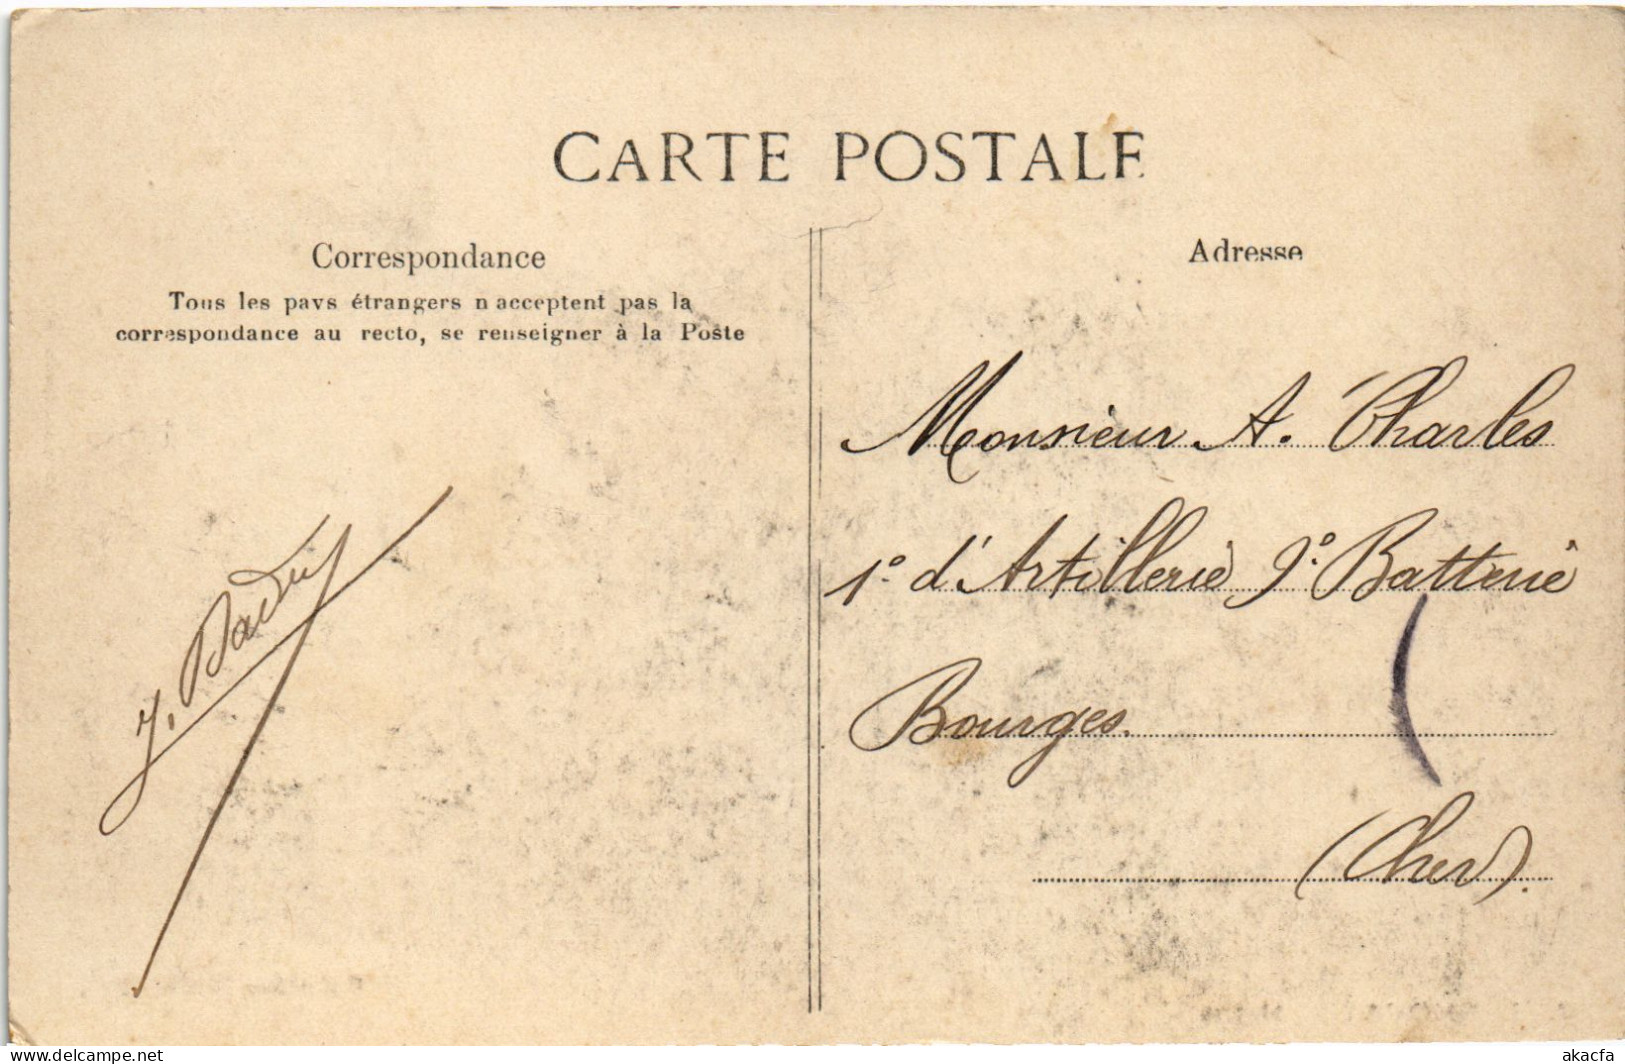 CARTE POSTALE
Correspondance
Tous les pays étrangers n'acceptent pas la
correspondance au recto, se renseigner à la Poste
J.
Adresse
Monsieur A. Charles
1º d'Artillerie 9º Batterie
Bourges.
(Cher).
DELCAMPE.NET
akacfa